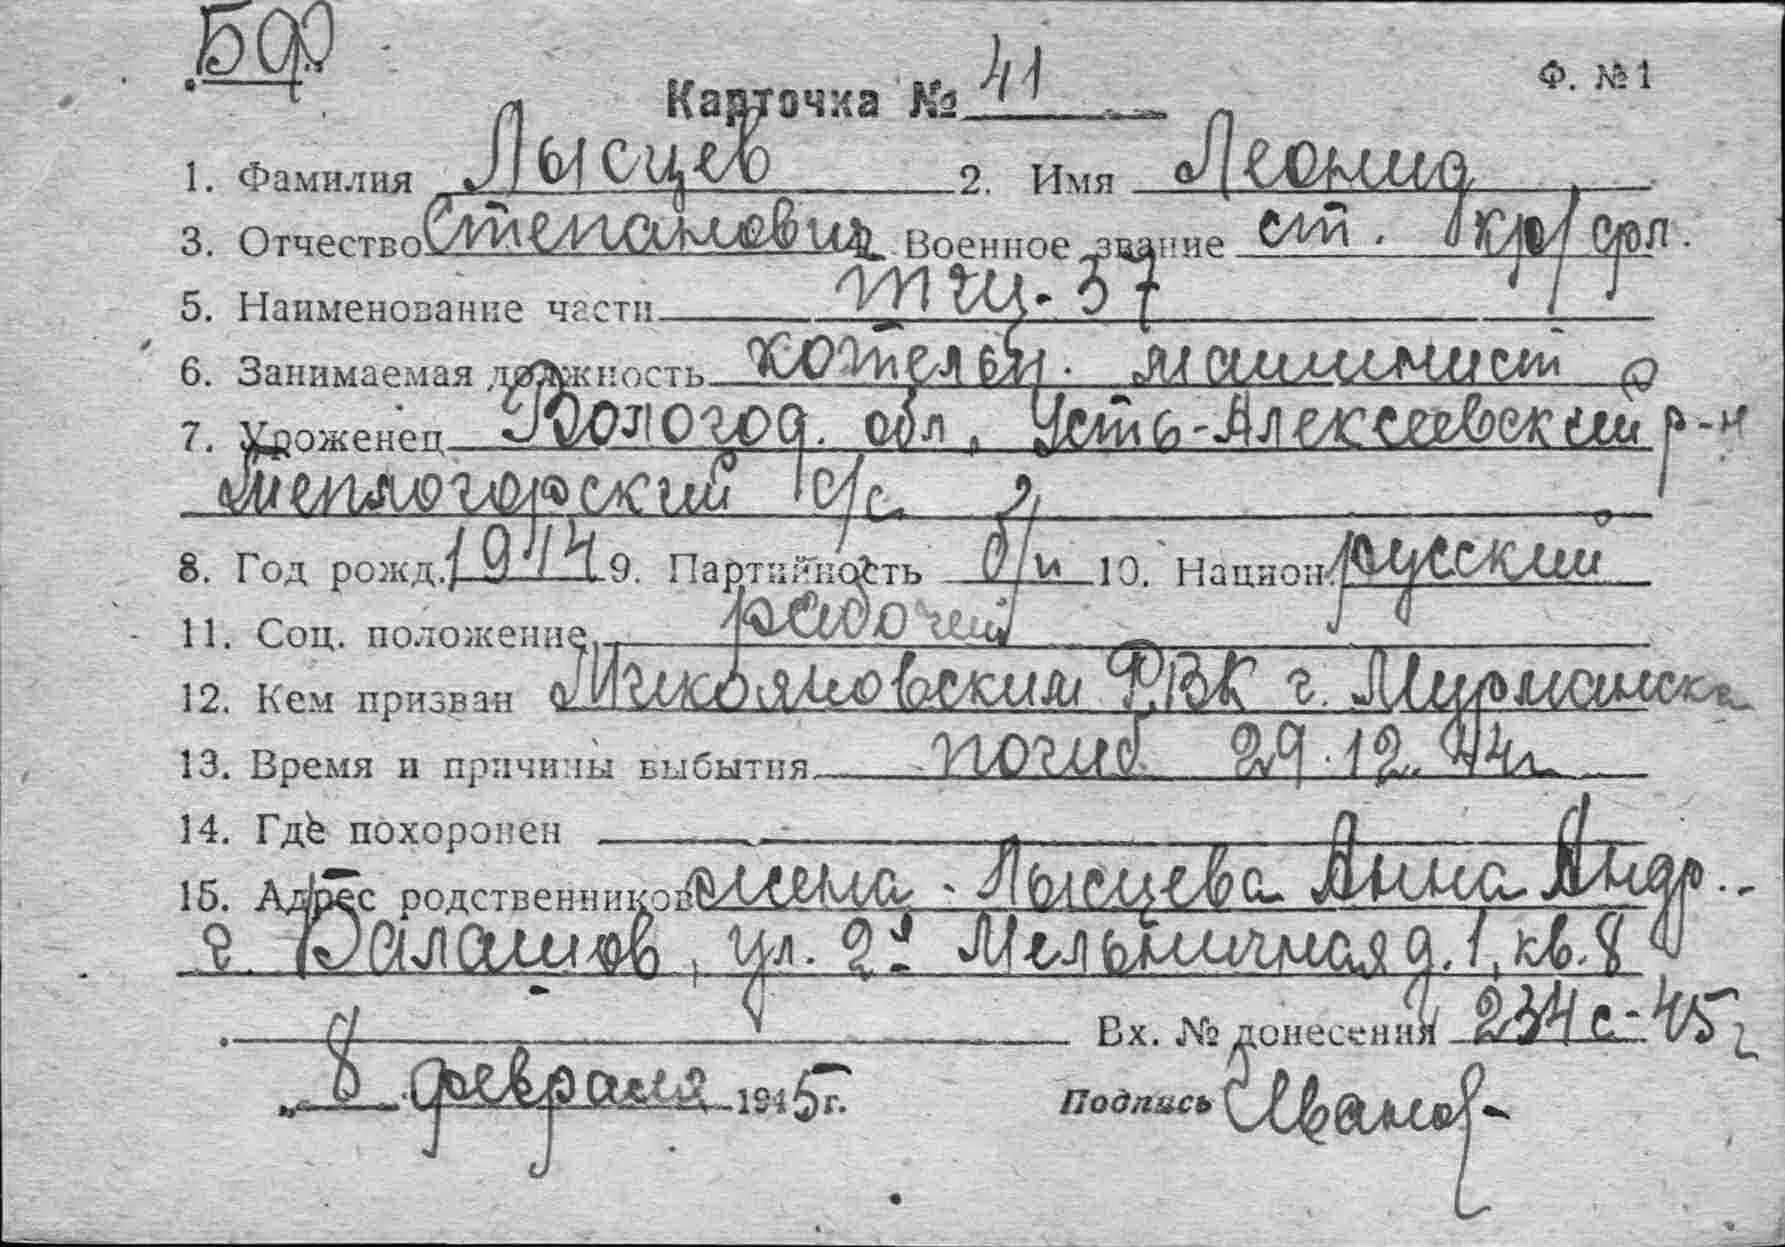 БФ
Карточка № 41
Ф. № 1
1. Фамилия Лысцев 2. Имя Леонид
3. Отчество Степанович Военное звание ст. кр/фл.
5. Наименование части ТЩ-37
6. Занимаемая должность котельн. машинист
7. Уроженец Вологод. обл, Усть-Алексеевский р-н
Теплогорский с/с
8. Год рожд. 1914 9. Партийность б/п 10. Национ. русский
11. Соц. положение рабочий
12. Кем призван Микояновским РВК г. Мурманска
13. Время и причины выбытия погиб 29.12.44г
14. Где похоронен
15. Адрес родственников жена - Лысцева Анна Андр..
г. Балашов, ул. 2я Мельничная д. 1, кв. 8
Вх. № донесения 234с-45г
„ 8 февраля 1945 г. Подпись Иванов